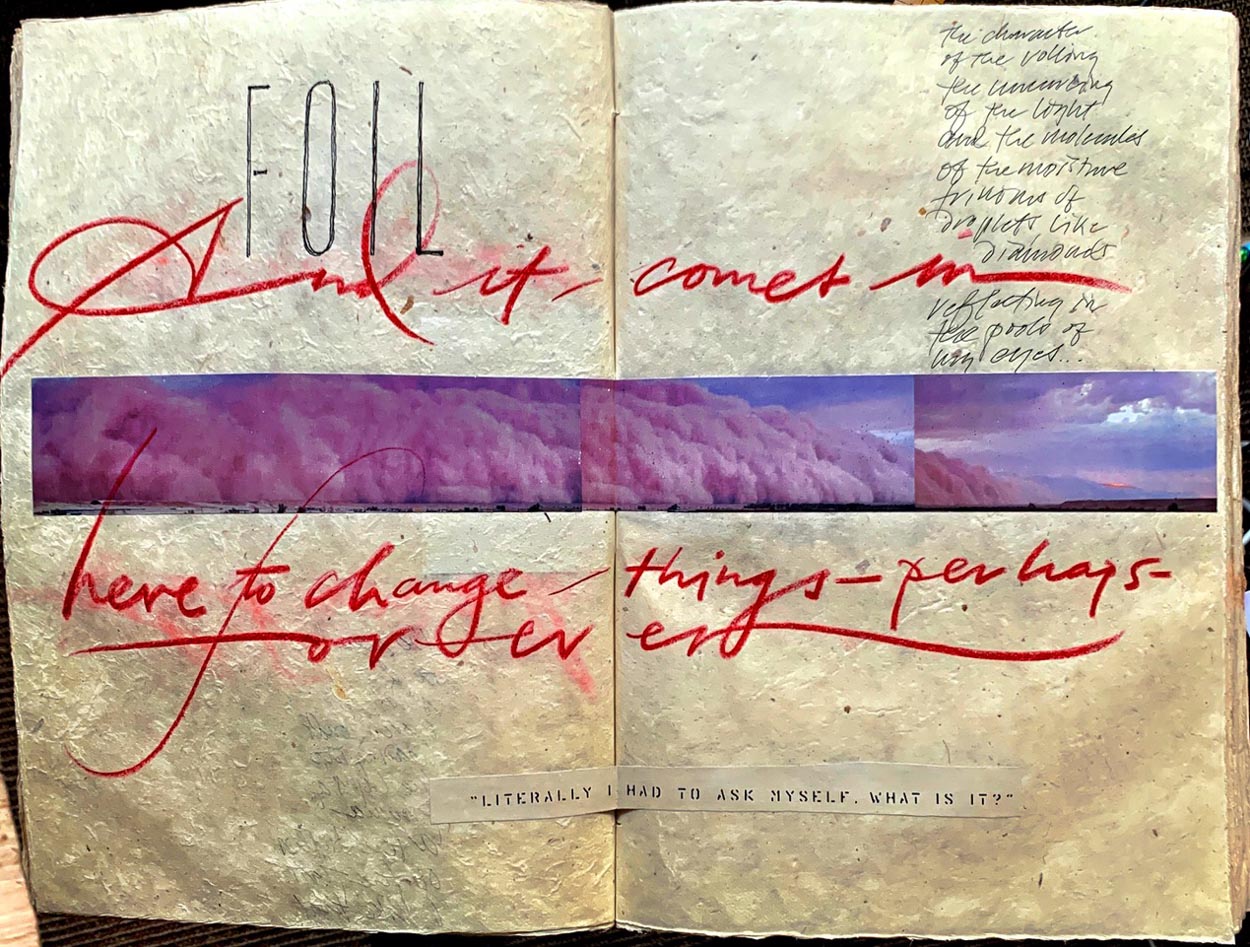 FOIL
the character
of the rolling
the unnerving
of the light
and the molecules
of the moisture
trillions of
droplets like
diamonds
And it comes in
reflecting in
the pools of
my eyes...
here to change things - perhaps -
for ever
"LITERALLY I HAD TO ASK MYSELF. WHAT IS IT?"